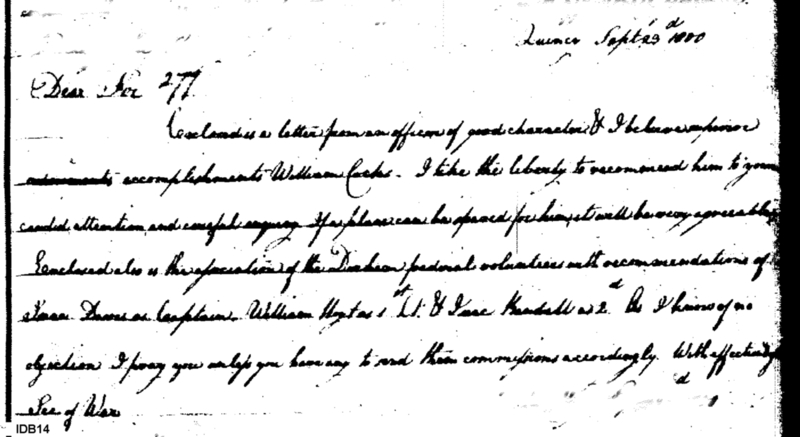 Quincy Sept 23d 1800
Dear Sir 277
Enclosed is a letter from an officer of good character & I believe superior
accomplishments William Cocks. I take the liberty to recommend him to your
candid attention and careful enquiry. If a place can be spared for him, it will be very agreeable,
Enclosed also is the association of the Durham federal volunteers with recommendations of
Isaac Davis as Captain. William Hoyt as 1st Lt. & Isaac Kendall as 2d. As I know of no
objection I pray you unless you have any to send them commissions accordingly. With affection
Sec of War
IDB14